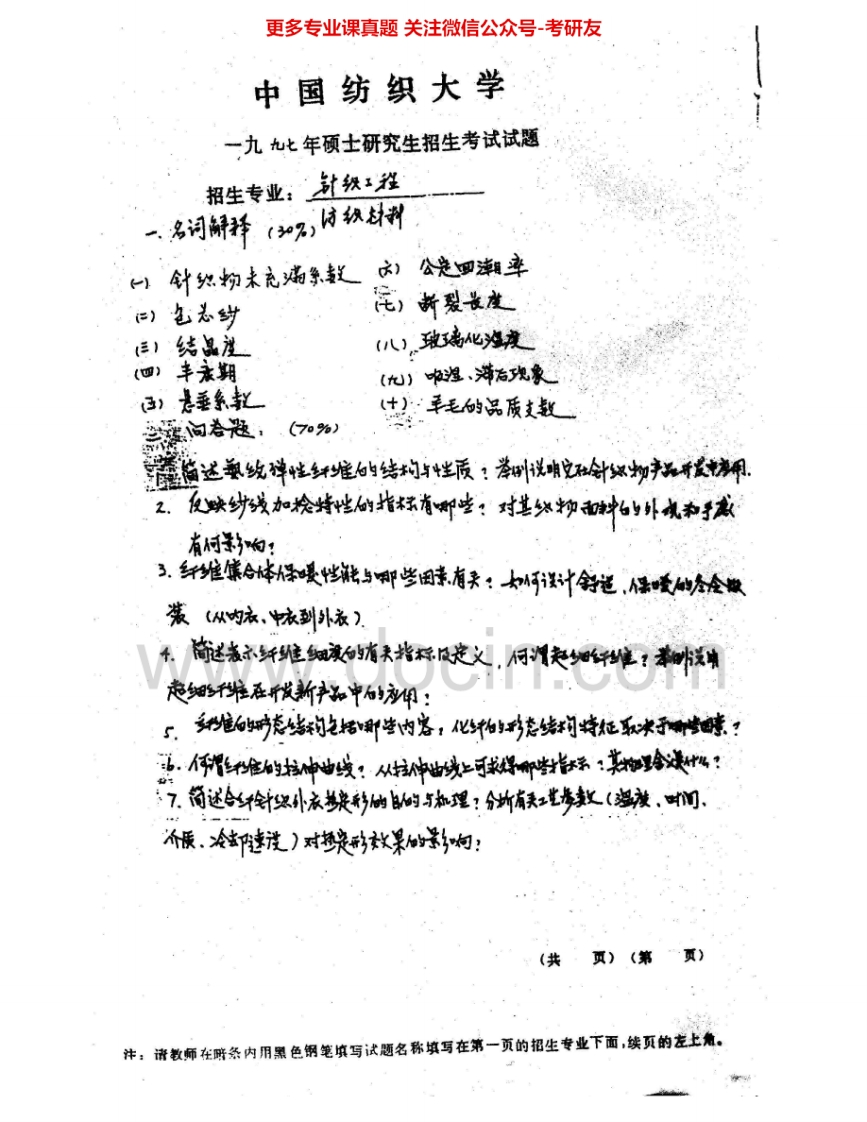 更多专业课真题 关注微信公众号-考研友
中国纺织大学
一九九七年硕士研究生招生考试试题
招生专业：针织工程
纺织材料
一、名词解释（30%）
(一) 针织物未充满系数
(二) 包芯纱
(三) 结晶度
(四) 半衰期
(五) 悬垂系数
(六) 公定回潮率
(七) 断裂长度
(八) 玻璃化温度
(九) 吸湿、滞后现象
(十) 羊毛的品质支数
二、问答题：（70%）
简述氨纶弹性纤维的结构与性质？举例说明它在针织物产品开发中应用.
2. 反映纱线加捻特性的指标有哪些？对其织物面料的外观和手感
有何影响？
3. 纤维集合体保暖性能与哪些因素有关？如何设计舒适、保暖的冬令服
装（从内衣、中衣到外衣）
4. 简述表示纤维细度的有关指标及定义，何谓超细纤维？举例说明
超细纤维在开发新产品中的应用？
5. 纤维的形态结构包括哪些内容，化纤的形态结构特征取决于哪些因素？
6. 何谓纤维的拉伸曲线？从拉伸曲线上可求得哪些指标？其物理含义是什么？
7. 简述合纤针织外衣热定形的目的与机理？分析有关工艺参数（温度、时间、
介质、冷却速度）对热定形效果的影响？
www.docin.com
（共 页）（第 页）
注：请教师在暗条内用黑色钢笔填写试题名称填写在第一页的招生专业下面，续页的左上角。